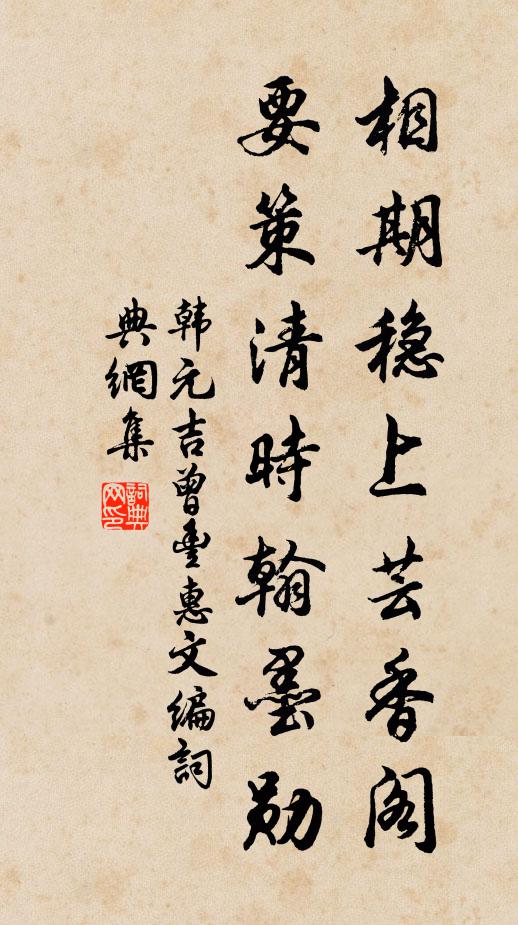 相期稳上芸香阁
要策清時翰墨勋
韩元吉曾豐惠文编詞
典網集
詞典
网印